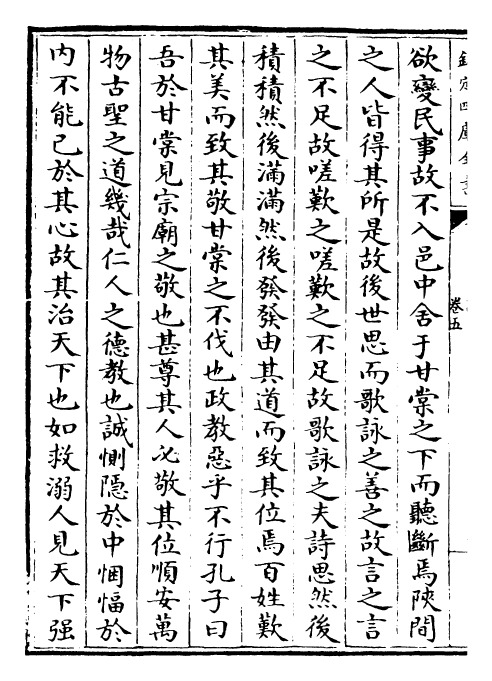 欽定四庫全書
卷五
欲變民事故不入邑中舍于甘棠之下而聽斷焉陜間
之人皆得其所是故後世思而歌詠之善之故言之言
之不足故嗟歎之嗟歎之不足故歌詠之夫詩思然後
積積然後滿滿然後發發由其道而致其位焉百姓歎
其美而致其敬甘棠之不伐也政教惡乎不行孔子曰
吾於甘棠見宗廟之敬也甚尊其人必敬其位順安萬
物古聖之道幾哉仁人之德教也誠惻隱於中悃愊於
内不能已於其心故其治天下也如救溺人見天下强